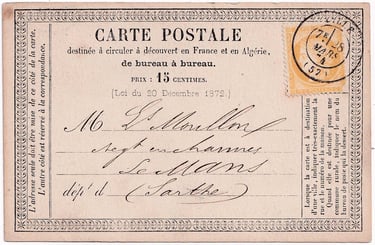 CARTE POSTALE
destinée à circuler à découvert en France et en Algérie,
de bureau à bureau.
PRIX : 15 CENTIMES.
[Loi du 20 Décembre 1872.]
L'adresse seule doit être mise de ce côté de la carte.
L'autre côté est réservé à la correspondance.
MARS
(52)
M.
Négt en chanvres
Le Mans
dépt d (Sarthe)
Lorsque la carte est à destination
d'une ville, indiquer très-exactement la
rue et le numéro de la maison.
Quand elle est destinée pour une
commune rurale, indiquer le nom du
bureau de poste qui la dessert.